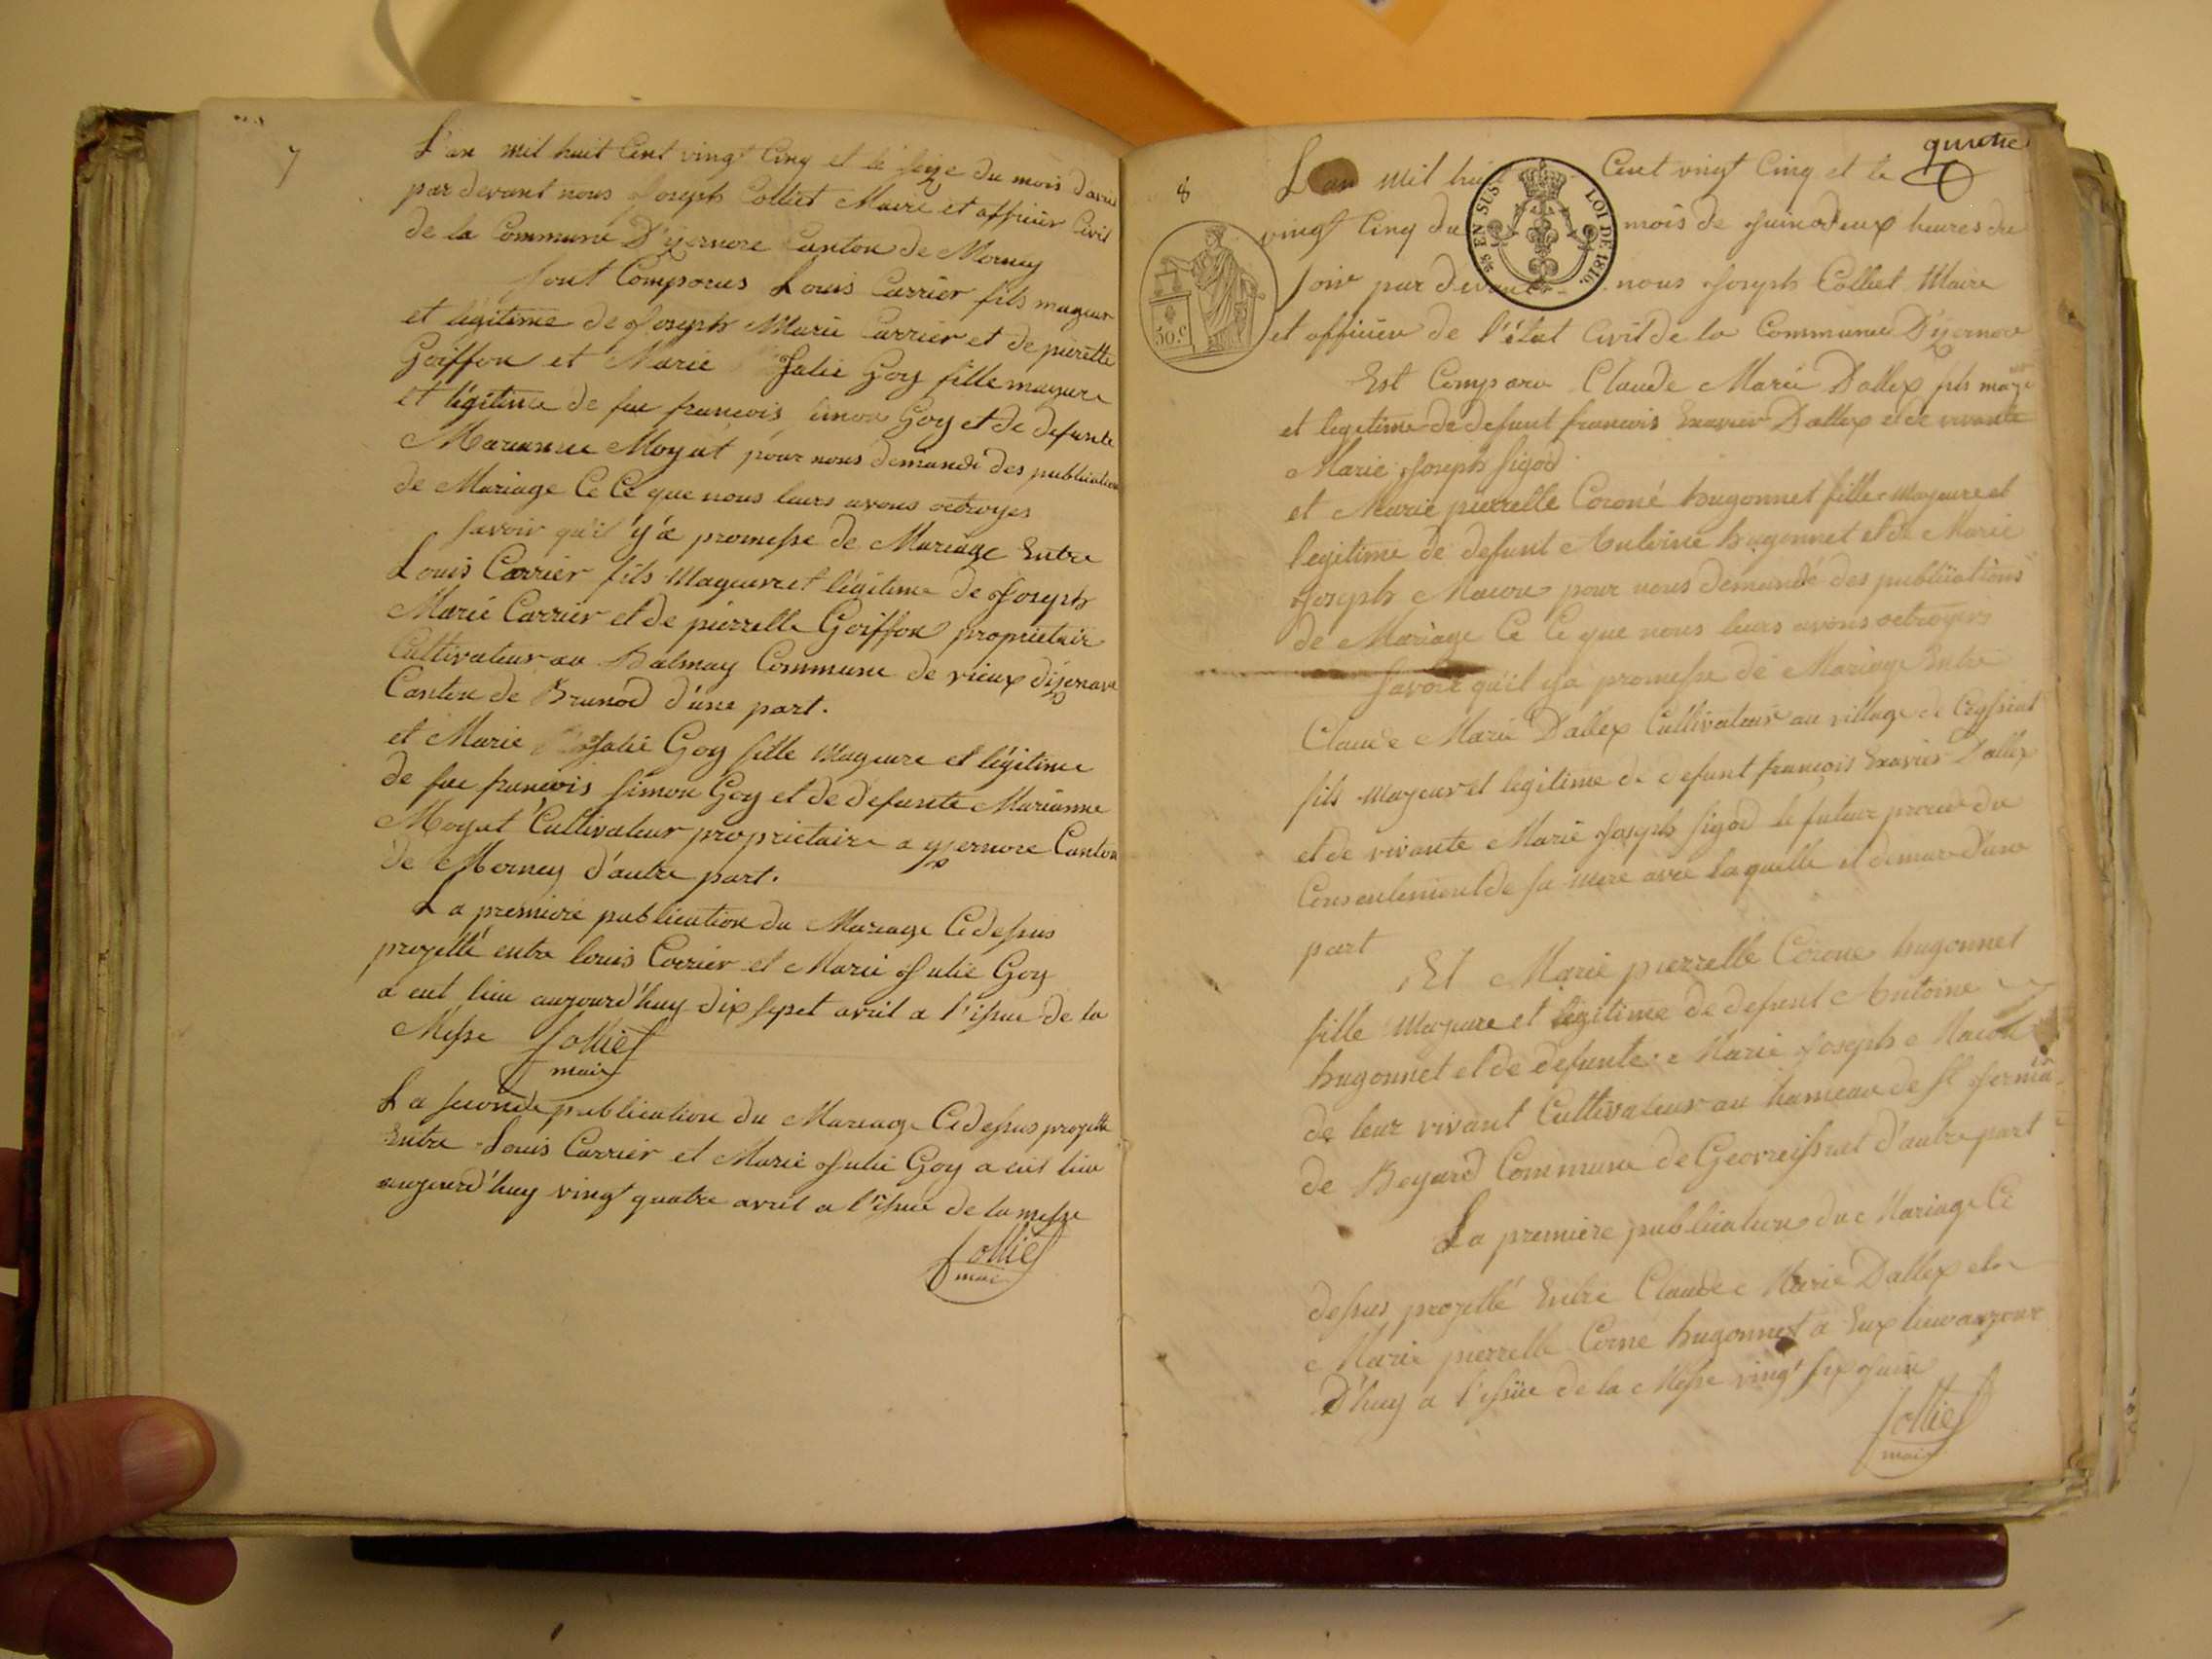 7
L'an mil huit Cent vingt Cinq et le seize du mois davril
par devant nous Joseph Colliet Maire et officier Civil
de la Commune D'yzernore Canton de Mornay
sont Comparus Louis Carrier fils mageur
et légitime de Joseph Marie Carrier et de pierrette
Goiffon et Marie Julie Goy fille mageure
et légitime de feu francois simon Goy et de defunte
Marianne Moyat pour nous demandé des publications
de Mariage Ce Ce que nous leurs avons octroyes
savoir qu'il y'a promesse de Mariage Entre
Louis Carrier fils Mageur et légitime de Joseph
Marie Carrier et de pierrette Goiffon proprietaire
Cultivateur au Balmay Commune de vieux d'izenave
Canton de Brunod d'une part.
et Marie Julie Goy fille Mageure et légitime
de feu francois simon Goy et de defunte Marianne
Moyat Cultivateur proprietaire a yzernore Canton
de Mornay d'autre part.
La premiere publication du Mariage Cidessus
projetté entre louis Carrier et Marie Julie Goy
a eut lieu aujourd'huy dix sept avril a l'issue de la
Messe Colliet
maire
La seconde publication du Mariage Cidessus projetté
Entre Louis Carrier et Marie Julie Goy a eut lieu
aujourd'huy vingt quatre avril a l'issue de la messe
Colliet
maire
8
L'an Mil huit Cent vingt Cinq et le
vingt Cinq du mois de Juin a deux heures du
soir par devant nous Joseph Colliet Maire
et officier de l'état Civil de la Commune D'yzernore
Est Comparu Claude Marie Dallex fils
et legetime de defunt francois Exavier Dallex et de vivante
Marie Joseph sigod
et Marie pierrette Coroné hugonnet fille Mageure et
legitime de defunt Antoine hugonnet et de Marie
Joseph Macon pour nous demandé des publications
de Mariage Ce Ce que nous leurs avons octroyers
Savoir qu'il y'a promesse de Mariage Entre
Claude Marie Dallex Cultivateur au village de Ceyssiat
fils Mageur et legitime de defunt françois Exavier Dallex
et de vivante Marie Joseph sigod le futur du
Consentement de sa mere avec laquelle il demure d'une
part
Et Marie pierrette Corone hugonnet
fille Mageure et légitime de defunt Antoine
hugonnet et de defunte Marie Joseph Macon
de leur vivant Cultivateur au hameau de St Germain
de Beyard Commune de Geovreissiat d'autre part
La premiere publication du Mariage Ce
dessus projetté Entre Claude Marie Dallex et
Marie pierrette Corne hugonnet a Eux lieu aujour
D'huy a l'issue de la Messe vingt six Juin
Colliet
maire
25 EN SUS
LOI DE 1816.
50.c